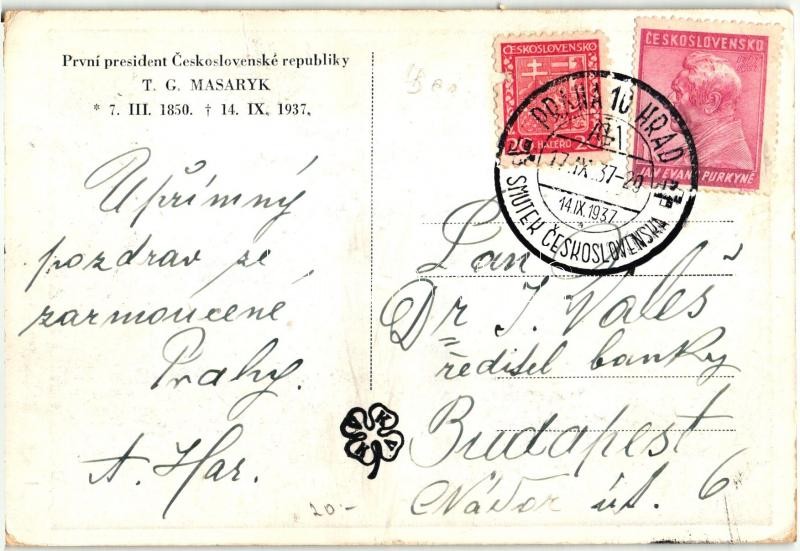 První president Československé republiky
T. G. MASARYK
* 7. III. 1850. † 14. IX. 1937.
Upřímný
pozdrav ze
zarmoucené
Prahy.
A. Har.
20.-
ČESKOSLOVENSKO
20 HALÉŘŮ 20
ČESKOSLOVENSKO
JAN EVANG. PURKYNĚ
PRAHA 10 HRAD
17.IX.37-20
14.IX.1937
SMUTEK ČESKOSLOVENSKA
Dr J. Valeš
ředitel banky
Budapest
Nádor út. 6